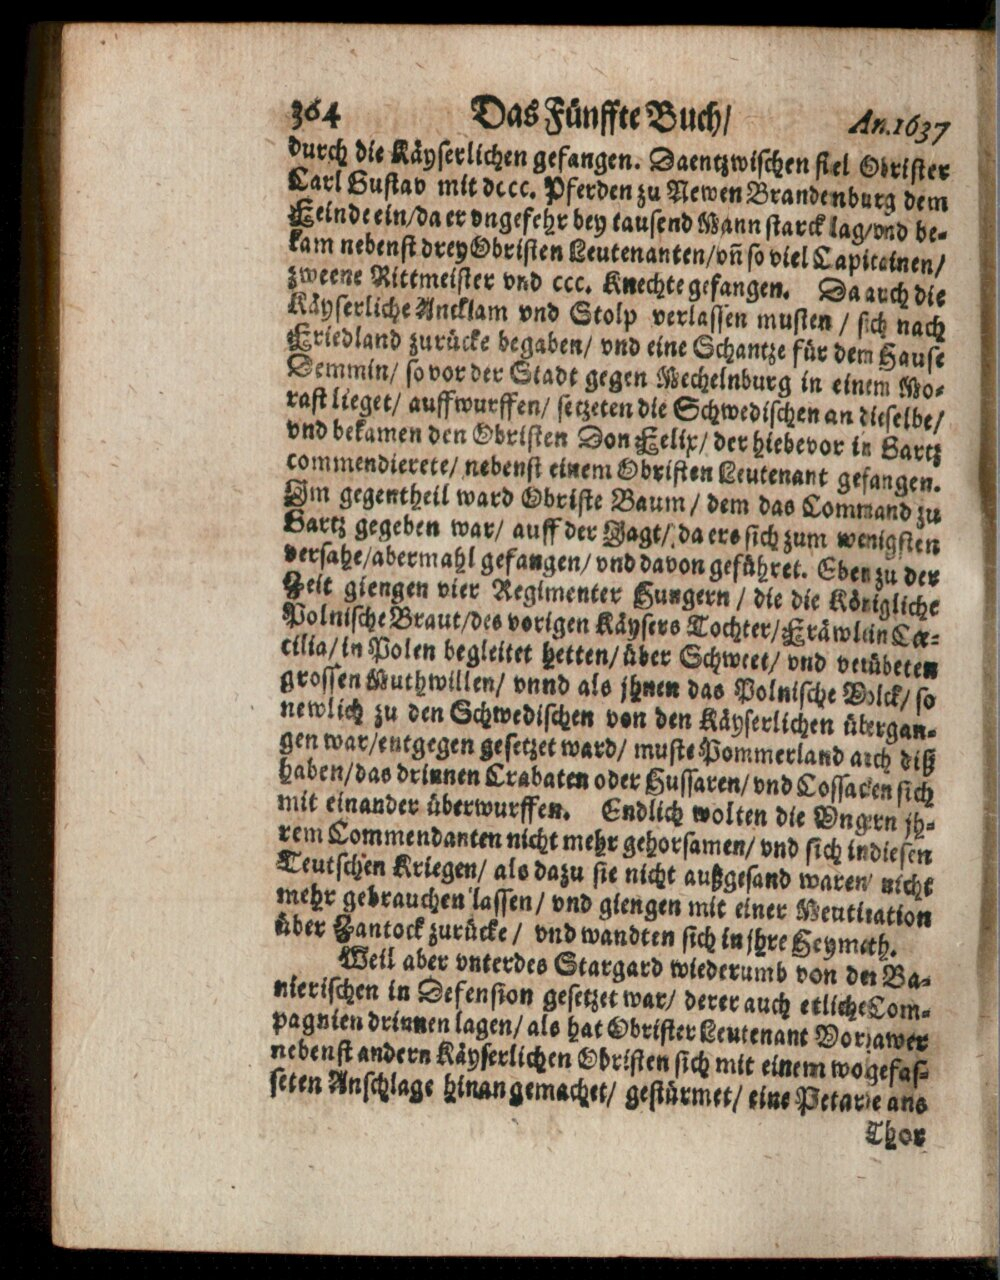 364 Das Fünffte Buch/ An. 1637
durch die Käyserlichen gefangen. Daentzwischen fiel Obrister
Carl Gustav mit dccc. Pferden zu Newen Brandenburg dem
Feinde ein/da er vngefehr bey tausend Mann starck lag/vnd be-
kam nebenst drey Obristen Leutenanten/vn̄ so viel Capiteinen/
zweene Rittmeister vnd ccc. Knechte gefangen. Da auch die
Käyserliche Ancklam vnd Stolp verlassen musten / sich nach
Friedland zurücke begaben/ vnd eine Schantze für dem Hause
Demmin/ so vor der Stadt gegen Mechelnburg in einem Mo-
rast lieget/ auffwurffen/ setzeten die Schwedischen an dieselbe/
vnd bekamen den Obristen Don Felix/ der hiebevor in Gartz
commendierete/ nebenst einem Obristen Leutenant gefangen.
Im gegentheil ward Obriste Baum / dem das Command zu
Gartz gegeben war/ auff der Jagt/ da ers sich zum wenigsten
versahe/abermahl gefangen/ vnd davon geführet. Eben zu der
Zeit giengen vier Regimenter Hungern / die die Königliche
Polnische Braut/des vorigen Käysers Tochter/Fräwlein Cœ-
cilia/ in Polen begleitet hetten/ über Schweet/ vnd verübeten
grossen Muthwillen/ vnnd als jhnen das Polnische Volck/ so
newlich zu den Schwedischen von den Käyserlichen übergan-
gen war/entgegen gesetzet ward/ muste Pommerland auch diß
haben/das drinnen Crabaten oder Hussaren/ vnd Cossacken sich
mit einander überwurffen. Endlich wolten die Vngern jh-
rem Commendanten nicht mehr gehorsamen/ vnd sich in diesen
Teutschen Kriegen/ als dazu sie nicht außgesand waren/ nicht
mehr gebrauchen lassen/ vnd giengen mit einer Meutination
über Zantock zurücke / vnd wandten sich in jhre Heymeth.
Weil aber vnterdes Stargard wiederumb von den Ba-
nierischen in Defension gesetzet war/ derer auch etliche Com-
pagnien drinnen lagen/ als hat Obrister Leutenant Vorhawer
nebenst andern Käyserlichen Obristen sich mit einem wolgefas-
seten Anschlage hinan gemachet/ gestürmet/ eine Petarde ans
Thor